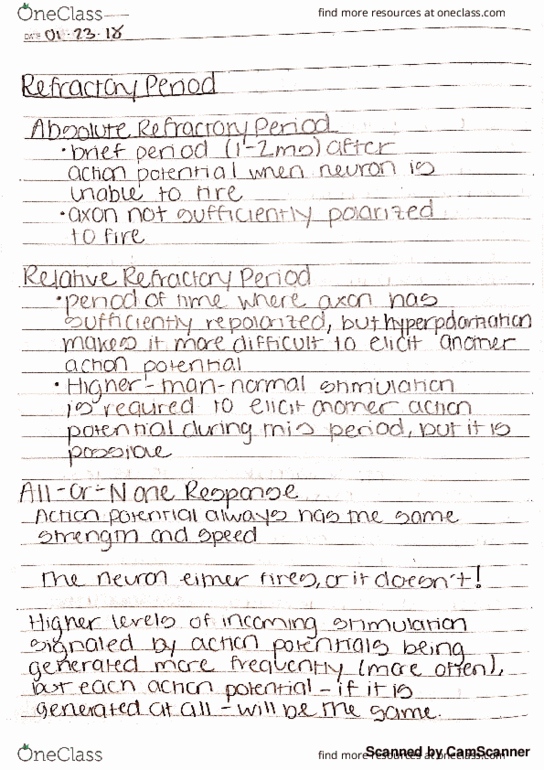 OneClass
find more resources at oneclass.com
DATE 01-23-18
Refractory Period
Absolute Refractory Period
• brief period (1-2ms) after
action potential when neuron is
unable to fire
• axon not sufficiently polarized
to fire
Relative Refractory Period
• period of time where axon has
sufficiently repolarized, but hyperpolarization
makes it more difficult to elicit another
action potential
• Higher-than-normal stimulation
is required to elicit another action
potential during this period, but it is
possible
All-or-None Response
Action potential always has the same
strength and speed
The neuron either fires, or it doesn't!
Higher levels of incoming stimulation
signaled by action potentials being
generated more frequently (more often),
but each action potential - if it is
generated at all - will be the same.
OneClass
find more resources at oneclass.com
Scanned by CamScanner